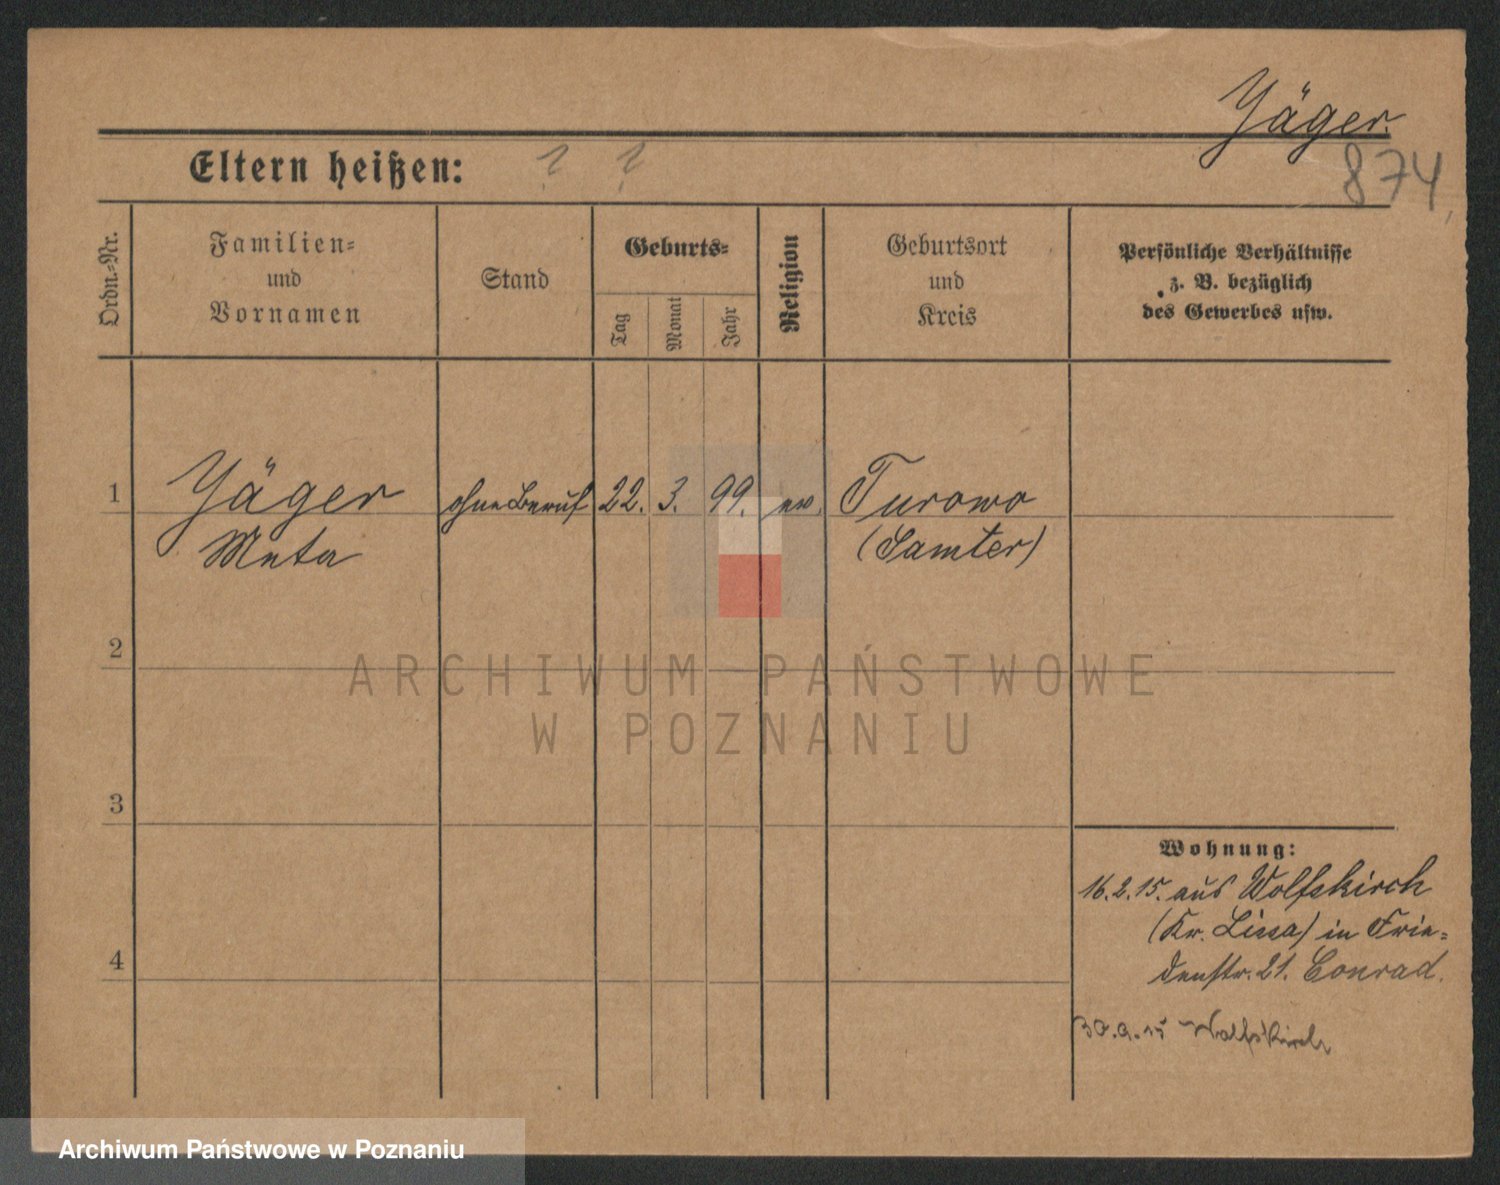 Jäger.
874
Eltern heißen: ? ?
Ordn.-Nr.
Familien-
und
Vornamen
Stand
Geburts-
Tag
Monat
Jahr
Religion
Geburtsort
und
Kreis
Persönliche Verhältnisse
z. B. bezüglich
des Gewerbes usw.
1 Jäger ohne Beruf 22. 3. 99. ev. Turowo
Meta (Samter)
2
3
4
Wohnung:
16.2.15. aus Wolfskirch
(Kr. Lissa) in Frie=
denstr. 21. Conrad.
30.9.15 Wolfskirch
ARCHIWUM PAŃSTWOWE
W POZNANIU
Archiwum Państwowe w Poznaniu